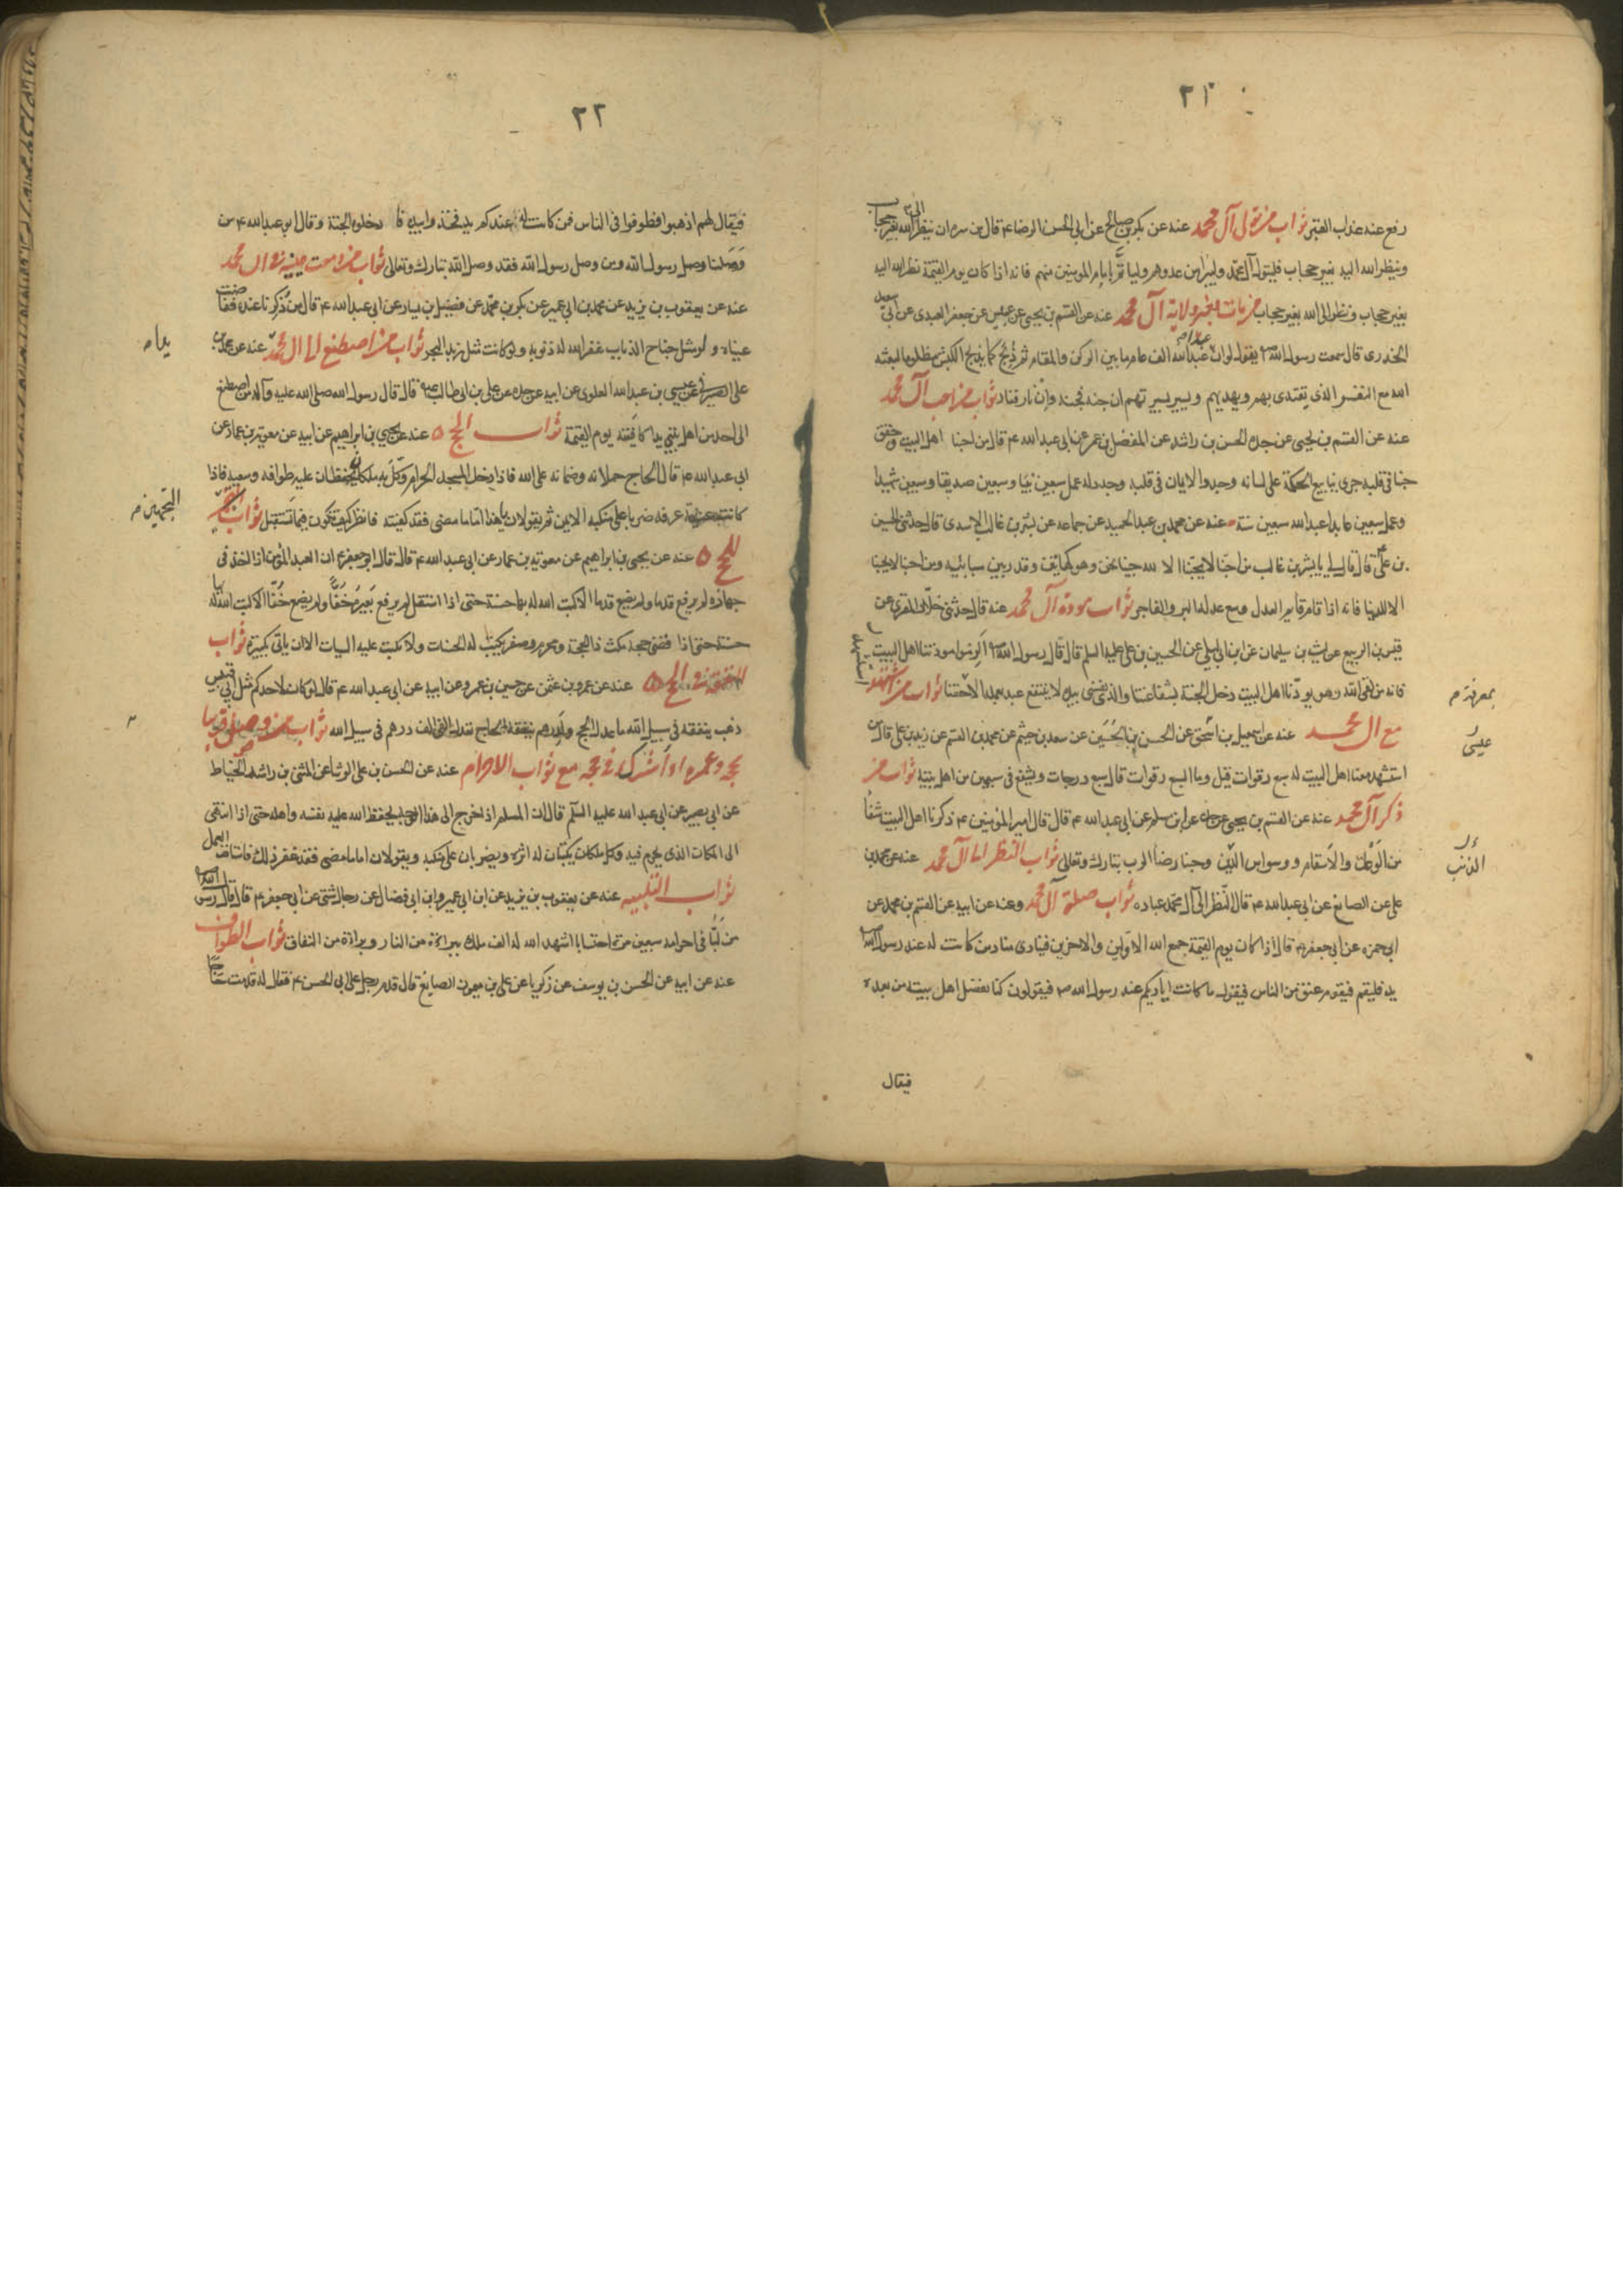 ٣١
رفع عنه عذاب القبر ثواب من تولى آل محمد عنه عن بكر بن صالح عن ابي الحسن الرضا ع قال من سره ان ينظر الى الله بغير حجاب
وينظر الله اليه بغير حجاب فليتول آل محمد وليبرا من عدوهم وليأتم بامام المومنين منهم فانه اذا كان يوم القيمة نظر الله اليه
بغير حجاب ونظر الى الله بغير حجاب من مات ولاية آل محمد عنه عن القسم بن يحيى عن عبيس عن جعفر العبدى عن ابى سعيد
الخدرى قال سمعت رسول الله ص يقول لو ان عبدا عبد الله الف عام ما بين الركن والمقام ثم ذبح كما يذبح الكبش مظلوما لبعثه
الله مع النفر الذى يقتدى بهم ويهديهم ويسير بسيرتهم ان جنة فجنة وان نار فنار ثواب من احب آل محمد
عنه عن القسم بن يحيى عن جده الحسن بن راشد عن المفضل بن عمر عن ابى عبد الله ع قال من احبنا اهل البيت وحقق
حبنا فى قلبه جرى ينابيع الحكمة على لسانه وجدد الايمان فى قلبه وجدد له عمل سبعين نبيا وسبعين صديقا وسبعين شهيدا
وعمل سبعين عابدا عبد الله سبعين سنة عنه عن محمد بن عبد الحميد عن جماعه عن بشر بن غالب الاسدى قال حدثنى الحسين
بن على قال قال لى يا بشر بن غالب من احبنا لا يحبنا الا لله جئنا نحن وهو كهاتين وقدر بين سبابتيه ومن احبنا لا يحبنا
الا للدنيا فانه اذا قام قايم العدل وسع عدله البر والفاجر ثواب مودة آل محمد عنه قال حدثنى خلاد المقرى عن
قيس بن الربيع عن ليث بن سليمان عن ابن ابى ليلى عن الحسين بن على عليه السلم قال قال رسول الله ص الزموا مودتنا اهل البيت
فانه من لقى الله وهو يودنا اهل البيت دخل الجنة بشفاعتنا والذى نفسى بيده لا ينتفع عبد بعمله الا بمعرفة حقنا ثواب من استشهد
مع آل محمد عنه عن اسمعيل بن اسحق عن الحسن بن الحسين عن سعد بن خيثم عن محمد بن القسم عن زيد بن على قال من
استشهد معنا اهل البيت له سبع رقوات قيل وما السبع رقوات قال سبع درجات ويشفع فى سبعين من اهل بيته ثواب من
ذكر آل محمد عنه عن القسم بن يحيى عن جده عن ابن مسلم عن ابى عبد الله ع قال قال امير المؤمنين ع ذكرنا اهل البيت شفا
من الوعك والاسقام ووسواس الذنب وحبنا رضا الرب تبارك وتعالى ثواب النظر الى آل محمد عنه عن محمد بن
على عن الصايغ عن ابى عبد الله ع قال النظر الى آل محمد عباده ثواب صلة آل محمد وعنه عن ابيه عن القسم بن محمد عن
ابى حمزه عن ابى جعفر ع قال اذا كان يوم القيمة جمع الله الاولين والاخرين فينادى مناد من كانت له عند رسول الله
يد فليقم فيقوم عنق من الناس فيقول ما كانت اياديكم عند رسول الله ص فيقولون كنا نفضل اهل بيته من بعده
فيقال
بمعرفة م
عيسى
الذنب
٣٢
فيقال لهم اذهبوا فطوفوا فى الناس فمن كانت له عندكم يد فخذوا بيده فا دخلوه الجنة وقال ابى عبد الله ع من
وصلنا وصل رسول الله ومن وصل رسول الله فقد وصل الله تبارك وتعالى ثواب من دمعت عينه فى آل محمد
عنه عن يعقوب بن يزيد عن محمد بن ابى عمير عن بكر بن محمد عن فضيل بن يسار عن ابى عبد الله ع قال من ذكرنا عنده ففاضت
عيناه ولو مثل جناح الذباب غفر الله له ذنوبه ولو كانت مثل زبد البحر ثواب من اصطنع الى آل محمد عنه عن محمد بن
على الصيرفى عن عيسى بن عبد الله العلوى عن ابيه عن جده عن على بن ابى طالب ع قال قال رسول الله صلى الله عليه وآله من اصطنع
الى احد من اهل بيتى يدا كافيته يوم القيمة ثواب الحج عنه عن يحيى بن ابراهيم عن ابيه عن معوية بن عمار عن
ابى عبد الله ع قال الحاج حملانه وضمانه على الله فاذا دخل المسجد الحرام وكل به ملكان يحفظان عليه طوافه وسعيه فاذا
كانت عشية عرفه ضربا على منكبه الايمن ثم يقولان يا هذا اما ما مضى فقد كفيته فانظر كيف تكون فيما تستقبل ثواب
للحج عنه عن يحيى بن ابراهيم عن معوية بن عمار عن ابى عبد الله ع قال قال ابو جعفر ع ان العبد المؤمن اذا اخذ فى
جهازه لم يرفع قدما ولم يضع قدما الا كتب الله له بها حسنة حتى اذا استقل لم يرفع بعيره خفا ولم يضع خفا الا كتب الله له بها
حسنة حتى اذا قضى حجه مكث ذا الحجة ومحرم وصفر يكتب له الحسنات ولا تكتب عليه السيات الا ان ياتى بكبيرة ثواب
النفقة فى الحج عنه عن عمرو بن عثمن عن حسين بن عمرو عن ابيه عن ابى عبد الله ع قال لو كان لاحدكم مثل ابى قبيس
ذهب ينفقه فى سبيل الله ما عدل الحج ولدرهم ينفقه الحاج تعدل الفى الف درهم فى سبيل الله ثواب من وصل قريبا
بحجه وعمره او اشرك فى حجه مع ثواب الاحرام عنه عن الحسن بن على الوشا عن المثنى بن راشد الحناط
عن ابى بصير عن ابى عبد الله عليه السلم قال ان المسلم اذا خرج الى هذا الوجه يحفظ الله عليه نفسه واهله حتى اذا انتهى
الى المكان الذى يحرم فيه وكل ملكان يكتبان له اثره ويضربان على منكبه ويقولان اما ما مضى فقد غفر ذلك فاستانف العمل
ثواب التلبيه عنه عن يعقوب بن يزيد عن ابن ابى عمير وابن ابى فضال عن رجال شتى عن ابى جعفر ع قال قال رسول الله
من لبا فى احرامه سبعين مرة احتسابا اشهد الله له الف ملك ببراءة من النار وبراءة من النفاق ثواب الطواف
عنه عن ابيه عن الحسن بن يوسف عن زكريا عن على بن ميمون الصايغ قال قدم رجل على ابى الحسن ع فقال له قدمت حاجا
يدا م
التجهيز م